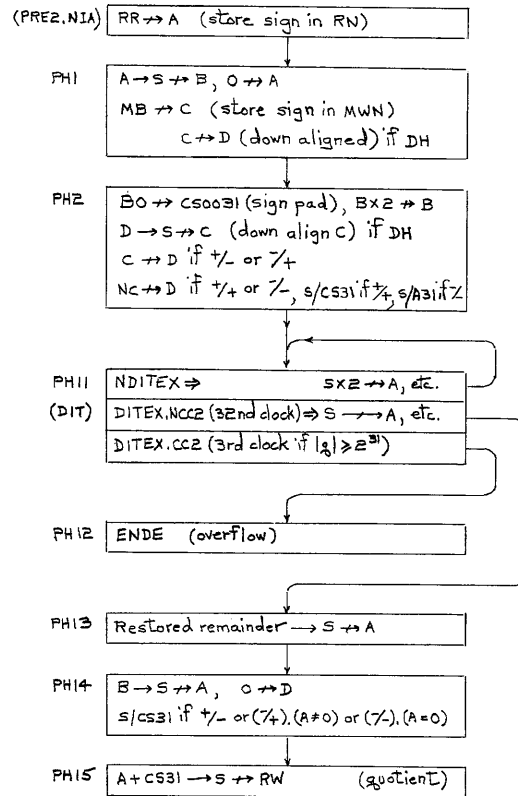 (PRE2.NIA) RR ↛ A (store sign in RN)
PH1 A → S ↛ B, 0 ↛ A
MB ↛ C (store sign in MWN)
C ↛ D (down aligned) if DH
PH2 B0 ↛ CS0031 (sign pad), B×2 ↛ B
D → S ↛ C (down align C) if DH
C ↛ D if +/- or -/+
NC ↛ D if +/+ or -/-, S/CS31 if +/+, S/A31 if -/-
PH11 NDITEX ⇒ S×2 ↛ A, etc.
(DIT) DITEX.NCC2 (32nd clock) ⇒ S ↛ A, etc.
DITEX.CC2 (3rd clock if |q| ≥ 2³¹)
PH12 ENDE (overflow)
PH13 Restored remainder → S ↛ A
PH14 B → S ↛ A, 0 ↛ D
S/CS31 if +/- or (-/+).(A≠0) or (-/-).(A=0)
PH15 A+CS31 → S ↛ RW (quotient)